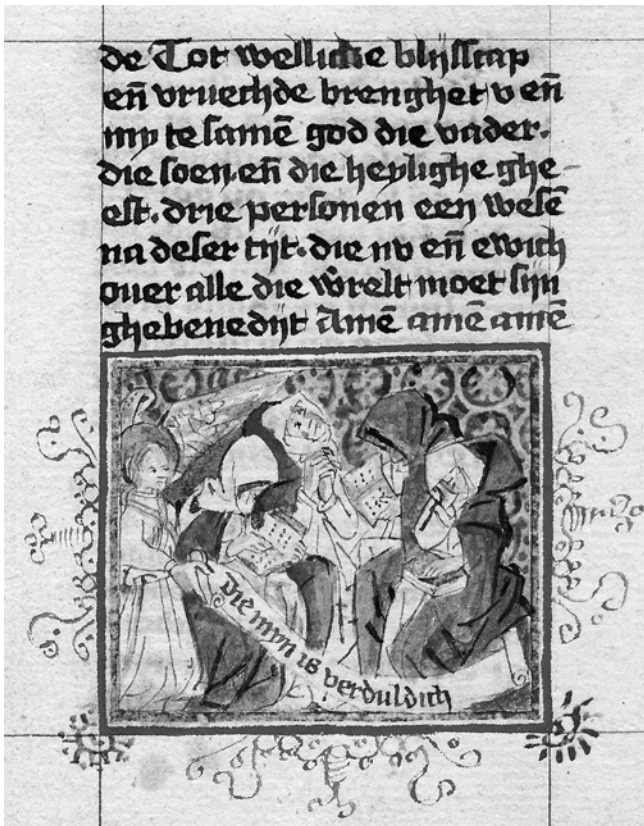 de Tot wellicke blijsscap
en̄ vruechde brenghet v en̄
my te samē god die vader.
die soen. en̄ die heylighe ghe-
est. drie personen een wesē
na deser tijt. die nv en̄ ewich
ouer alle die werelt moet sijn
ghebenedijt Amē amē amē
die myn is verduldich